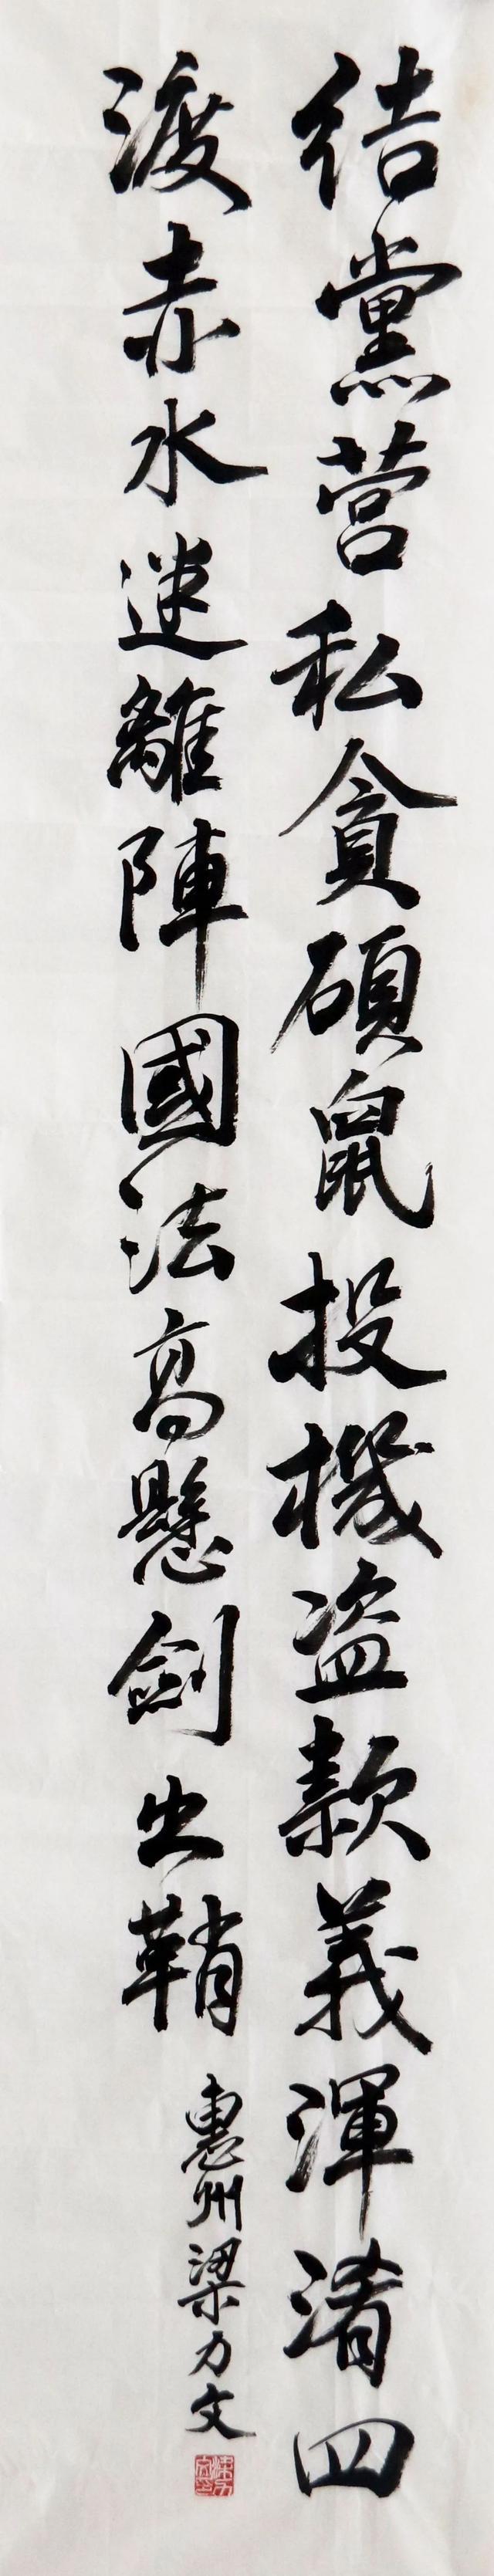 结黨营私貪碩鼠投機盗款義渾淆四
渡赤水迷離陣國法高懸劍出鞘
惠州梁力文